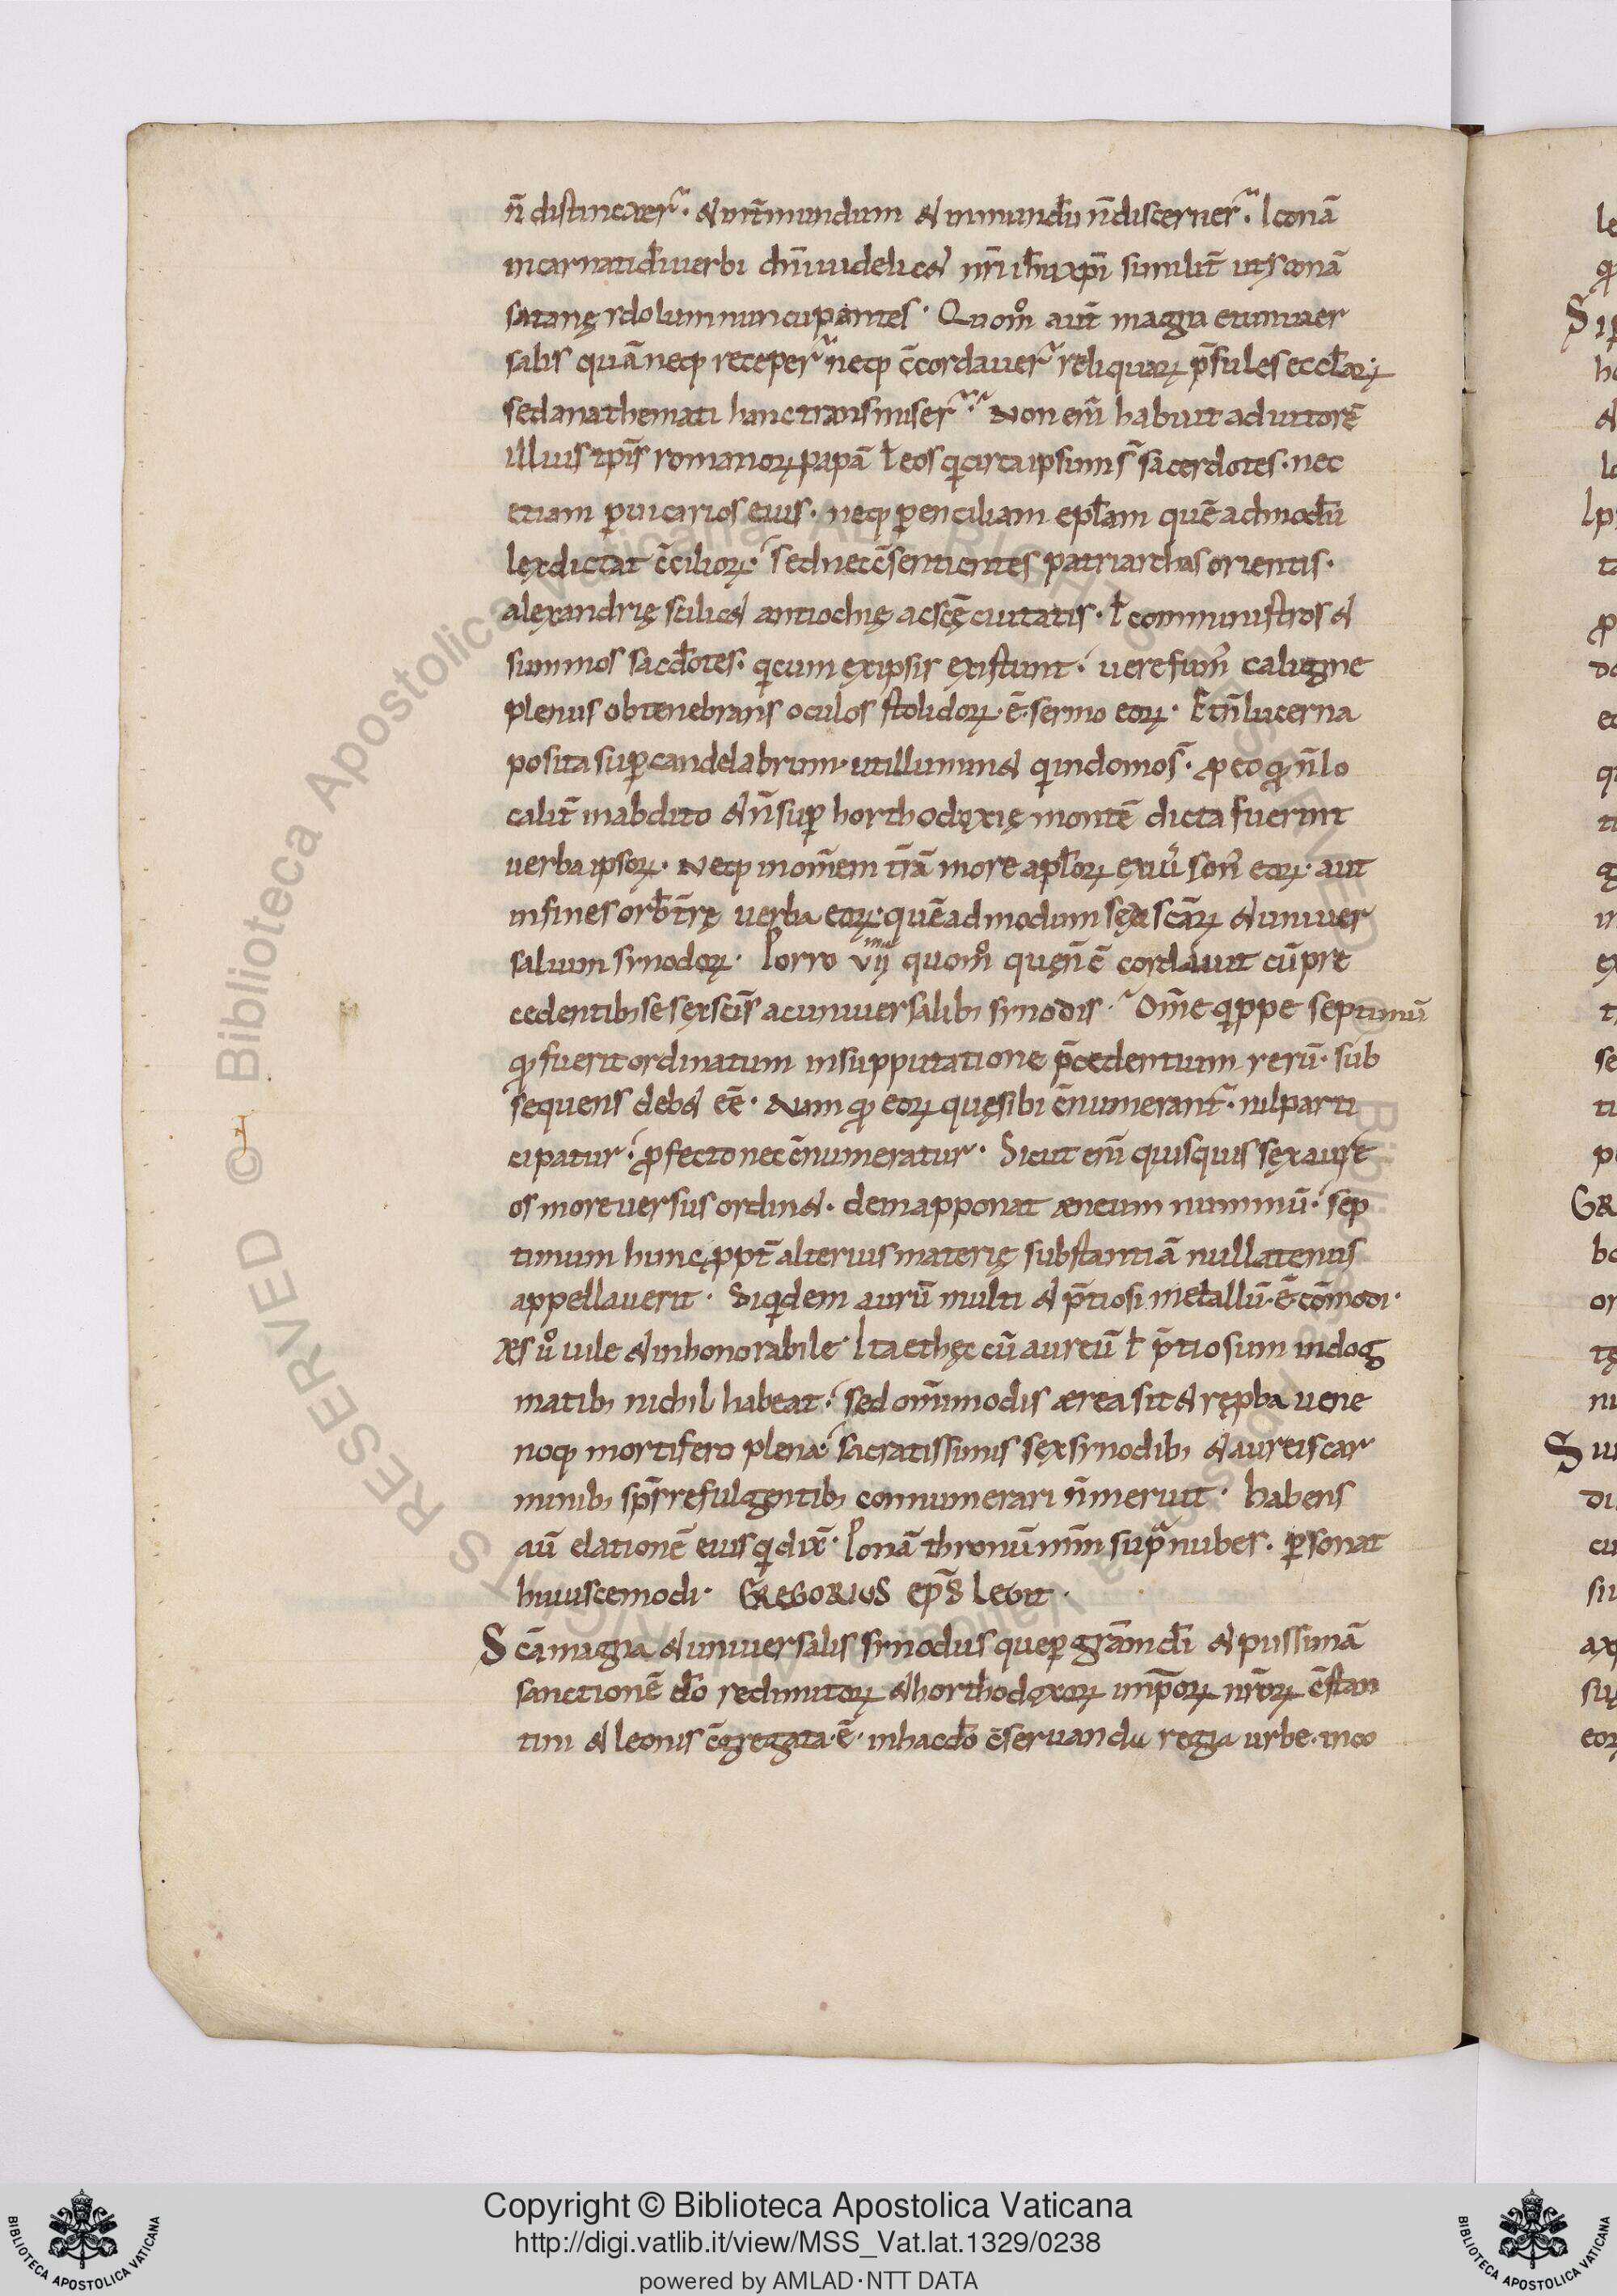 n̄ distinxer̄. & int̄ mundum & inmundū n̄ discerner̄. Iconā
incarnati dī uerbi dn̄i uidelic& nr̄i ih̄u xp̄i similit̄ ut yconā
satanę ydolum nuncupantes. Quom̊ aut̄ magna et uniuer
salis quā neq; receper̄ neq; c̄cordauer̄ reliquaꝝ p̄sules eccl̄aꝝ;
sed anathemati hanc transmiser̄. Non eni̅ habuit adiutorē
illius tp̄is romanoꝝ papā ł eos qͥ circa ipsum s̄ sacerdotes. nec
etiam ꝑ uicarios eius. neq; ꝑ encicliam epl̄am quēadmodū
lex dictat c̄cilioꝝ. sed nec c̄sentientes patriarchas orientis.
alexandrię scilic& antiochię ac scę̄ ciuitatis. ł comministros &
summos sacd̄otes. qͥ cum ex ipsis existunt. uere fum̄ caligine
plenus obtenebrans oculos stolidoꝝ. ē. sermo eoꝝ. Et n̄ lucerna
posita suꝑ candelabrum. ut illumin& qͥ in domo s̄. ꝓ eo qđ n̄ lo
calit̄ in abdito & n̄ suꝑ horthodoxię montē dicta fuerint
uerba ipsoꝝ. Neq; in om̄em t̄rā more apl̄oꝝ exiū son̄ eoꝝ. aut
in fines orb̄ t̄rę uerba eoꝝ. quēadmodum sex scāꝝ & uniuer
salium synodoꝝ. Porro vii ma quom̊ quę n̄ c̄ cordauit cū pre
cedentib; se sex scīs ac uniuersalib; synodis. Om̄e qͥppe septimū
qđ fuerit ordinatum in supputatione p̄cedentium rerū. sub
sequens deb& eē. Nam qđ eoꝝ quę sibi c̄numerant̄. nil parti
cipatur. ꝓfecto nec c̄numeratur. Sicut eni̅ quisquis sex aure
os more uersus ordin&. dein apponat æneum nummū. sep
timum hunc ꝓpt̄ alterius materię substantiā nullatenus
appellauerit. Siqͥdem aurū multi & p̄tiosi metallū. ē. cōmodi.
Æs ů uile & inhonorabile. Ita et hęc cū aureū ł p̄tiosum in dog
matib; nichil habeat. sed om̄imodis ærea sit & rep̱ba uene
noq; mortifero plena. sacratissimis sex synodib; & aureis car
minib; sp̄s refulgentib; connumerari n̄ meruit. habens
aū elationē eius qͥ dix̄. Ponā thronū mm̄ supͣ nubes. ꝑsonat
huiuscemodi. GREGORIUS ep̄s Legit.
Scā magna & uniuersalis synodus que ꝑ grām dī & piissimā
sanctionē dō redimitoꝝ & horthodoxoꝝ imp̄oꝝ nr̄oꝝ c̄stan
tini & leonis c̄gregata. ē. in hac dō c̄seruanda regia urbe. in oo